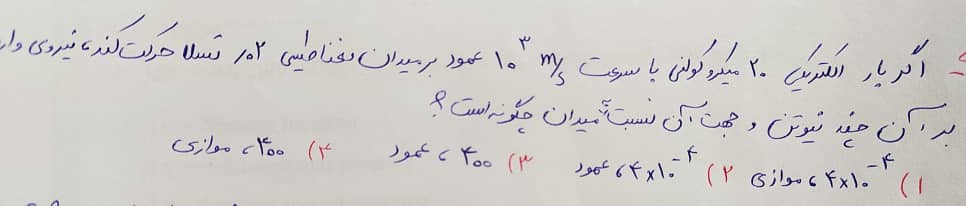 اگر بار الکتریکی ۲۰ میکروکولنی با سرعت ۱۰^۳ m/s عمود بر میدان مغناطیسی ۰/۰۲ تسلا حرکت کند، نیروی وار
بر آن چند نیوتن و جهت آن نسبت به میدان چگونه است؟
۱) ۴×۱۰^-۴ ، موازی ۲) ۴×۱۰^-۴ ، عمود ۳) ۴۰۰ ، عمود ۴) ۴۰۰ ، موازی